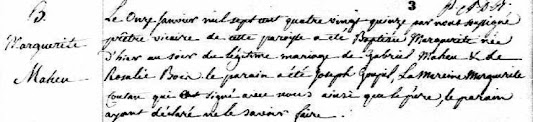 3
B.
Marguerite
Maheu
Le Onze Janvier mil sept cent quatre vingt quinze par nous soussigné
prêtre vicaire de cette paroisse a été Baptisée Marguerite née
d'hier au soir du légitime mariage de Gabriel Maheu & de
Rosalie Bois le parain a été Joseph Goupil La Mareine Marguerite
Coutan qui ont signé avec nous ainsi que le père, le parain
ayant déclaré ne le savoir faire.